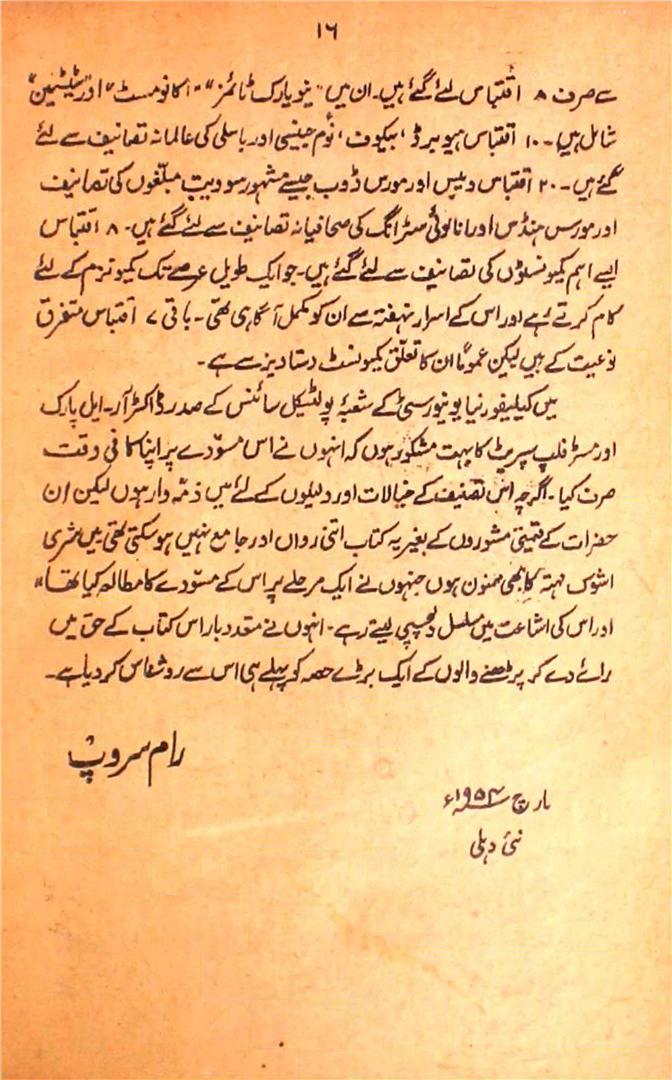 ۱۶
سے صرف ۸ اقتباس لئے گئے ہیں۔ ان میں "نیویارک ٹائمز" "اکانومسٹ" اور "سٹیٹسمین"
شامل ہیں۔ ۱۰ اقتباس ہیوبرڈ، بیکوف، نوم جینسی اور باسلی کی عالمانہ تصانیف سے لئے
گئے ہیں۔ ۲۰ اقتباس ویبس اور مورس ڈوب جیسے مشہور سوویت مبلّغوں کی تصانیف
اور مورس ہنڈس اور انا لوئی سٹرانگ کی صحافیانہ تصانیف سے لئے گئے ہیں۔ ۸ اقتباس
ایسے اہم کمیونسٹوں کی تصانیف سے لئے گئے ہیں۔ جو ایک طویل عرصے تک کمیونزم کے لئے
کام کرتے رہے اور اس کے اسرارِ نہفتہ سے ان کو مکمل آگاہی تھی۔ باقی ۷ اقتباس متفرق
نوعیت کے ہیں لیکن عموماً ان کا تعلّق کمیونسٹ دستاویز سے ہے۔
میں کیلیفورنیا یونیورسٹی کے شعبۂ پولٹیکل سائنس کے صدر ڈاکٹر آر۔ ایل پارک
اور مسٹر فلپ سپریٹ کا بہت مشکور ہوں کہ انہوں نے اس مسوّدے پر اپنا کافی وقت
صرف کیا۔ اگرچہ اس تصنیف کے خیالات اور دلیلوں کے لئے میں ذمّہ دار ہوں لیکن ان
حضرات کے قیمتی مشوروں کے بغیر یہ کتاب اتنی رواں اور جامع نہیں ہو سکتی تھی۔ میں شری
اشوک مہتہ کا بھی ممنون ہوں جنہوں نے ایک مرحلے پر اس کے مسوّدے کا مطالعہ کیا تھا،
اور اس کی اشاعت میں مسلسل دلچسپی لیتے رہے۔ انہوں نے متعدد بار اس کتاب کے حق میں
رائے دے کر پڑھنے والوں کے ایک بڑے حصہ کو پہلے ہی اس سے روشناس کر دیا ہے۔
رام سروپ
مارچ ۱۹۵۴ء
نئی دہلی